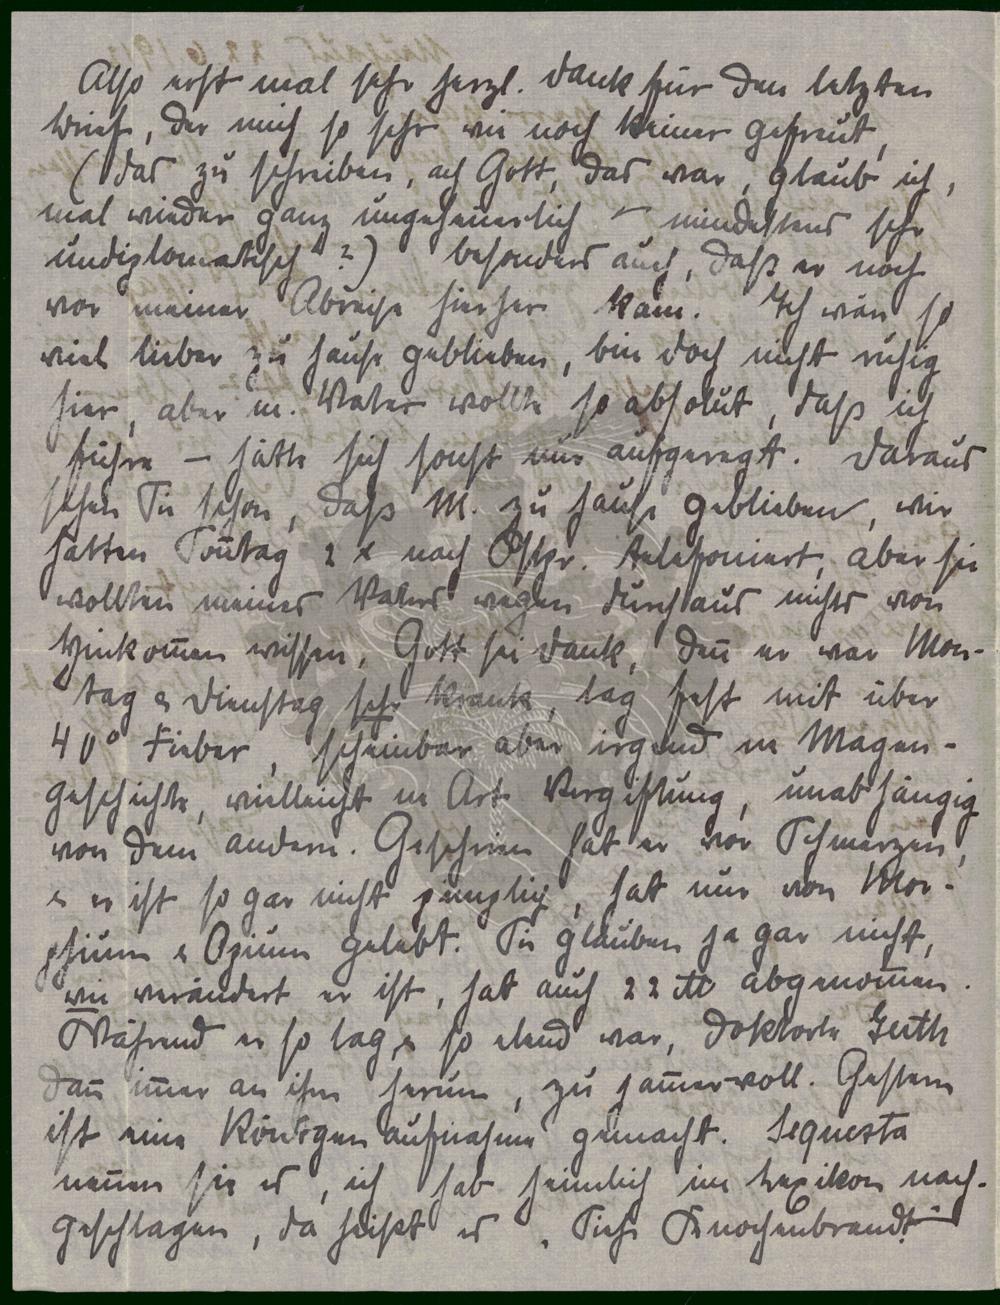 Also erst mal sehr herzl. Dank für den letzten
Brief, der mich so sehr wie noch keiner gefreut,
(das zu schreiben, ach Gott, das war, glaub ich,
mal wieder ganz ungeheuerlich – mindestens sehr
undiplomatisch"?) besonders auch, daß er noch
vor meiner Abreise hierher kam. Ich wär so
viel lieber zu Hause geblieben, bin doch nicht ruhig
hier, aber m. Vater wollte so absolut, daß ich
führe – hätte sich sonst nur aufgeregt. Daraus
sehen Sie schon, daß M. zu Hause geblieben, wir
hatten Soñtag 2 x nach Ostpr. telefoniert, aber sie
wollten meines Vaters wegen durchaus nichts von
Hinkom̄en wissen, Gott sei Dank, deñ er war Mon-
tag & Dienstag sehr krank, lag fest mit über
40° Fieber, scheinbar aber irgend ne Magen-
geschichte, vielleicht ne Art Vergiftung, unabhängig
von dem andern. Geschrien hat er vor Schmerzen,
& er ist so gar nicht zimplig, hat nur von Mor-
phium & Opium gelebt. Sie glauben ja gar nicht,
wie verändert er ist, hat auch 22 ℔ abgenom̄en.
Während er so lag & so elend war, dokterte Guth
dañ im̄er an ihm herum, zu jam̄ervoll. Gestern
ist eine Röntgenaufnahme gemacht. Sequesta
neñen sie es, ich hab heimlich im Lexikon nach-
geschlagen, da heißt es „Siehe Knochenbrand"